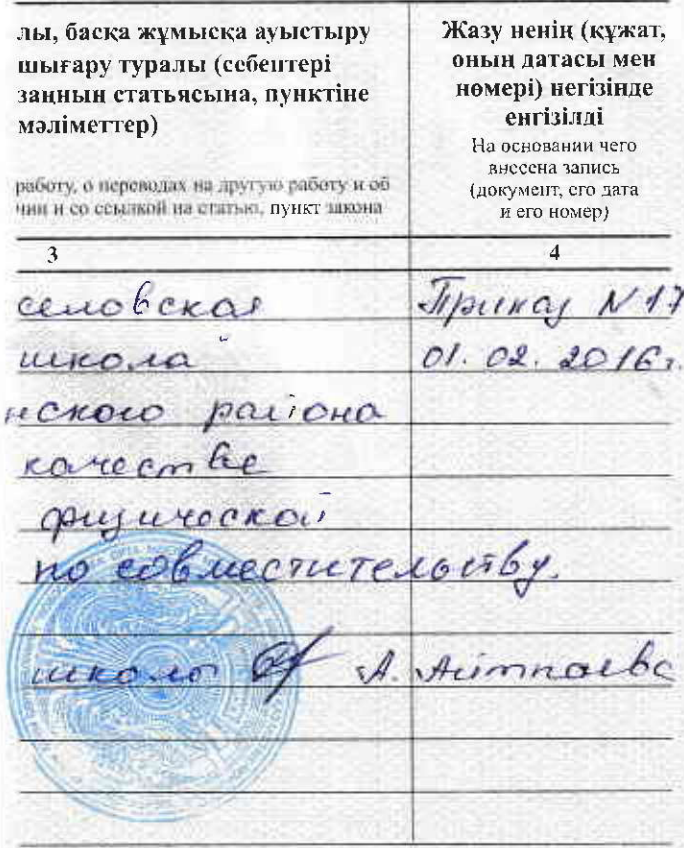 лы, басқа жұмысқа ауыстыру
шығару туралы (себептері
заңның статьясына, пунктіне
мәліметтер)
работу, о переводах на другую работу и об
чин и со ссылкой на статью, пункт закона
Жазу ненің (құжат,
оның датасы мен
нөмері) негізінде
енгізілді
На основании чего
внесена запись
(документ, его дата
и его номер)
3 4
селовская Приказ N 17
школа 01.02.2016г.
нского района
качестве
физической
по совместительству.
школы А. Айтпаева